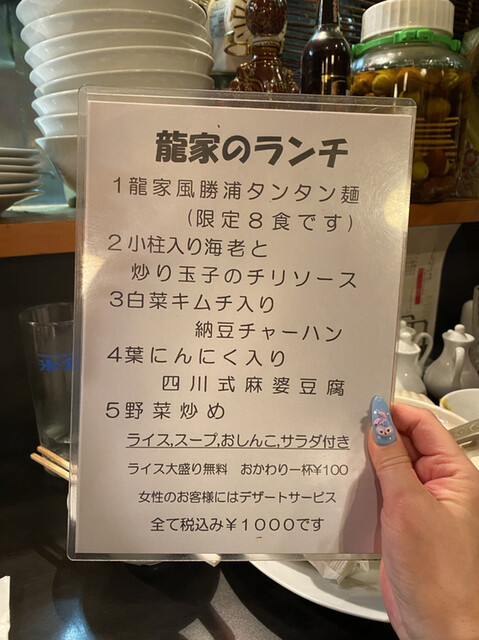 龍家のランチ
1龍家風勝浦タンタン麺
(限定8食です)
2小柱入り海老と
炒り玉子のチリソース
3白菜キムチ入り
納豆チャーハン
4葉にんにく入り
四川式麻婆豆腐
5野菜炒め
ライス,スープ,おしんこ,サラダ付き
ライス大盛り無料 おかわり一杯¥100
女性のお客様にはデザートサービス
全て税込み¥1000です